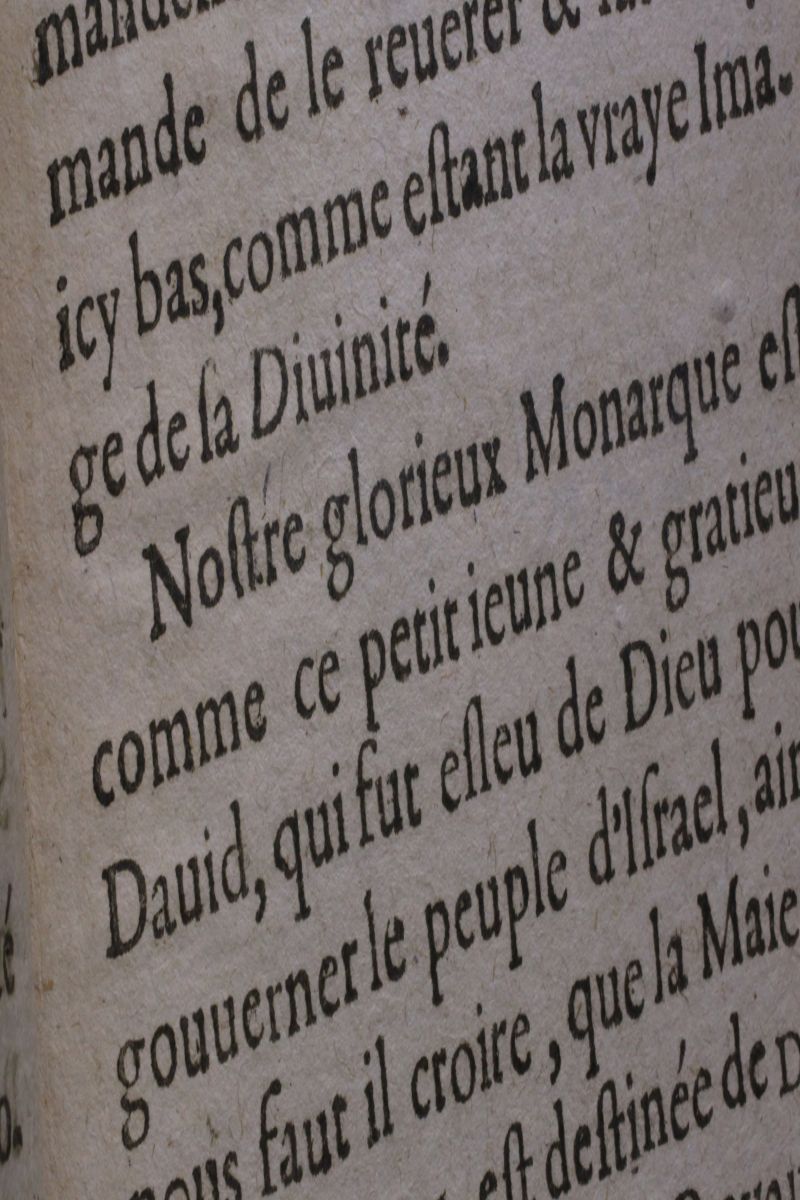 mande de le reuerer &
icy bas, comme eſtant la vraye Ima-
ge de ſa Diuinité.
Noſtre glorieux Monarque eſt
comme ce petit ieune & gratieu
Dauid, qui fut eſleu de Dieu pou
gouuerner le peuple d'Iſrael, ain
nous faut il croire, que la Maie
eſt deſtinée de D